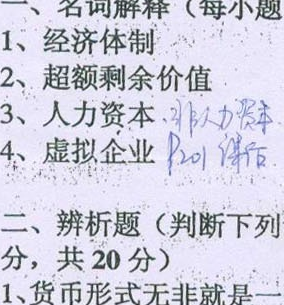 一、名词解释（每小题
1、经济体制
2、超额剩余价值
3、人力资本 非人力资本
4、虚拟企业 P201
二、辨析题（判断下列
分，共 20 分）
1、货币形式无非就是一